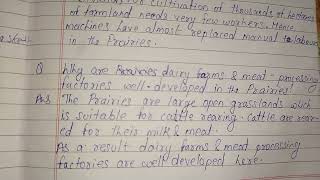 for cultivation of thousands of hectares
of farmland needs very few workers. Hence
machines have almost replaced manual labour
in the Prairies.
Q Why are Prairies dairy farms & meat-processing
factories well-developed in the Prairies?
Ans The Prairies are large open grasslands which
is suitable for cattle rearing. Cattle are rear-
ed for their milk & meat.
As a result dairy farms & meat processing
factories are well developed here.